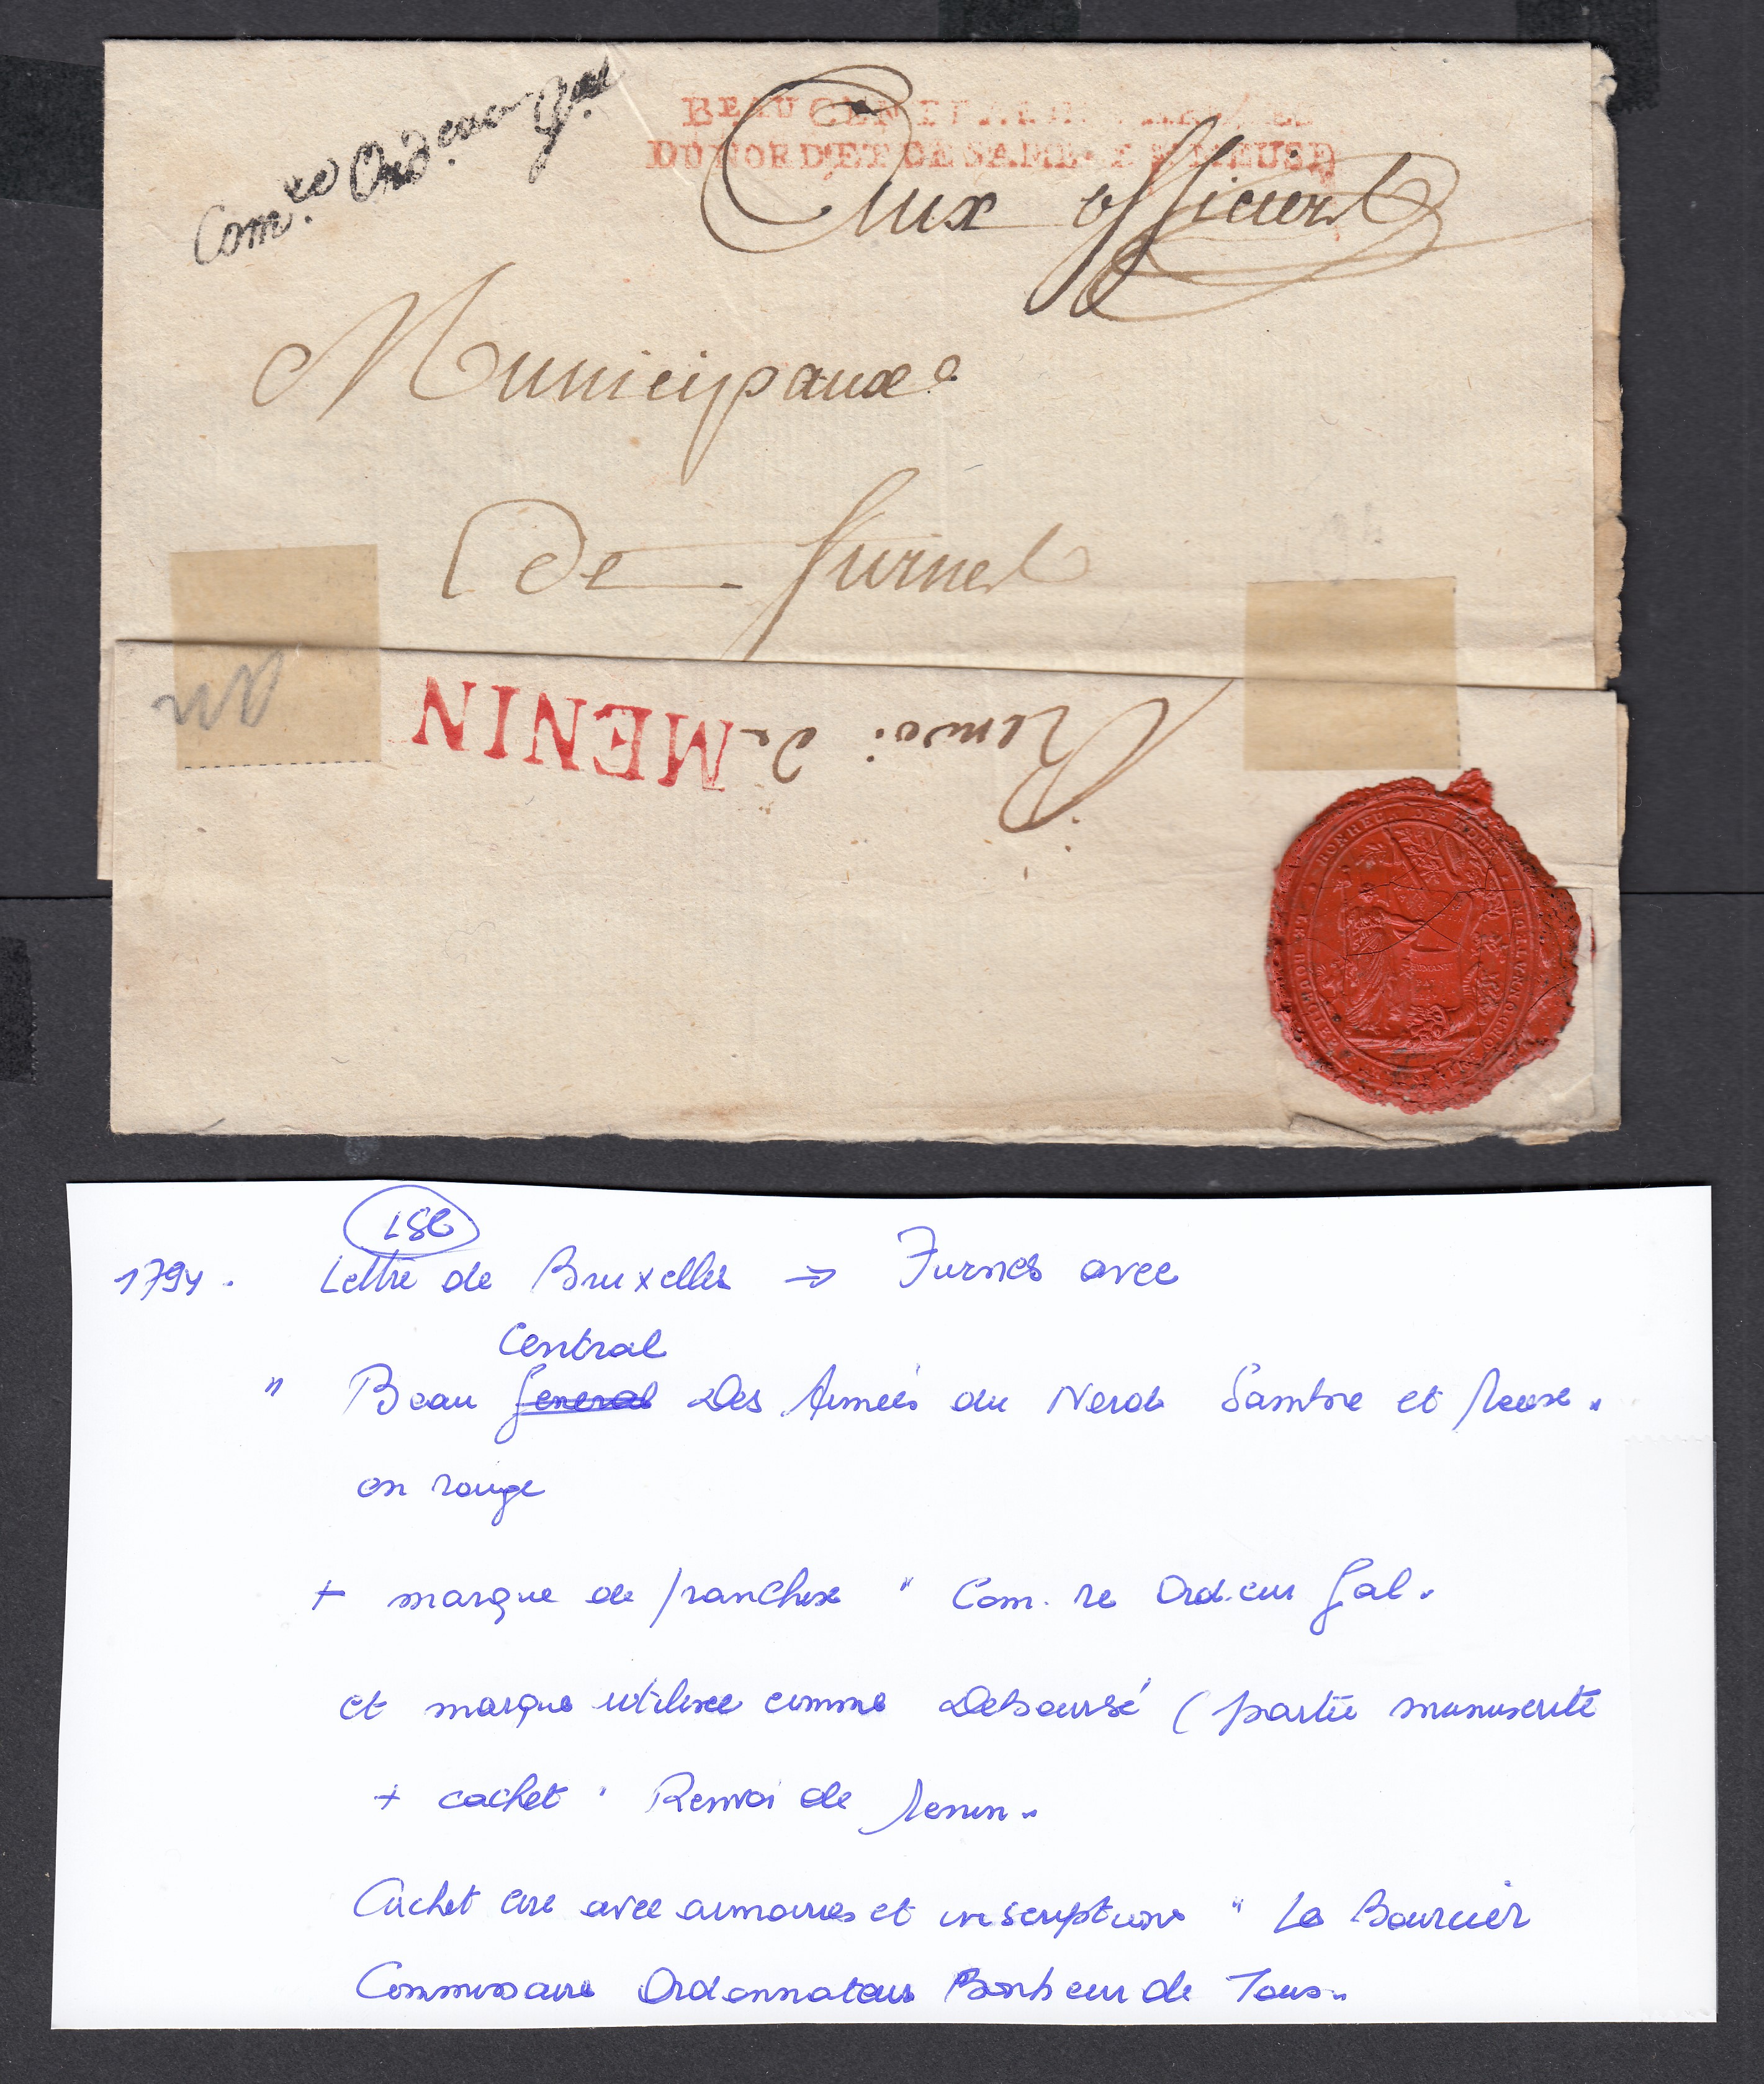 Com.re Ord.eur G.al
BEAU CEN
DU NORD ET DE SAMB MEUSE
Aux officiers
Municipaux
de furnes
Renvoi de MENIN
LE BOURCIER ORDONNATEUR BONHEUR DE TOUS
HUMANITE
LSC
1794. Lettre de Bruxelles → Furnes avec
Central
" Beau General Des Armées du Nord Sambre et Meuse "
en rouge
+ marque de franchise " Com. re Ord.eur Gal "
et marque utilisee comme Deboursé ( partie manuscrite
+ cachet " Renvoi de Menin "
Cachet cire avec armoiries et inscriptions " Le Bourcier
Commissaire Ordonnateur Bonheur de Tous "